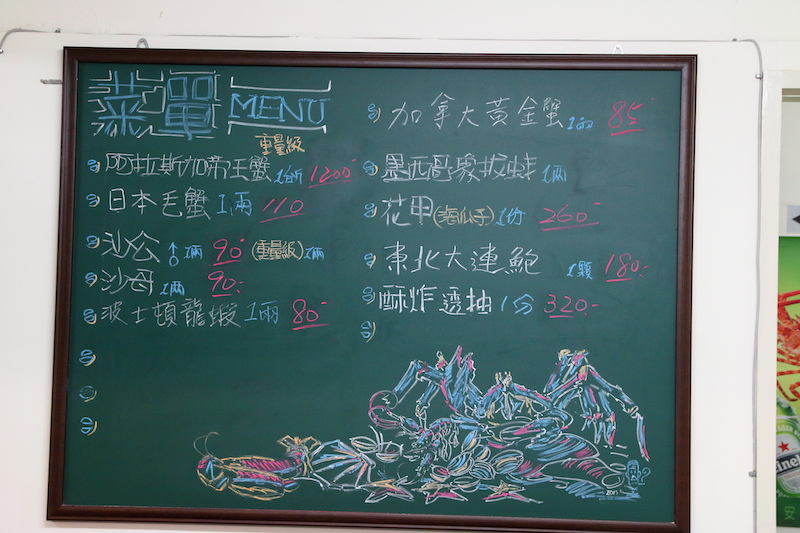 菜單 MENU
重量級
阿拉斯加帝王蟹 1台斤 1200
日本毛蟹 1兩 110
沙公♂ 1兩 90 (重量級) 1兩
沙母 1兩 90.-
波士頓龍蝦 1兩 80
加拿大黃金蟹 1兩 85
墨西哥象拔蚌 1兩
花甲(海瓜子) 1份 260
東北大連鮑 1顆 180.-
酥炸透抽 1分 320.-
Heineken
安